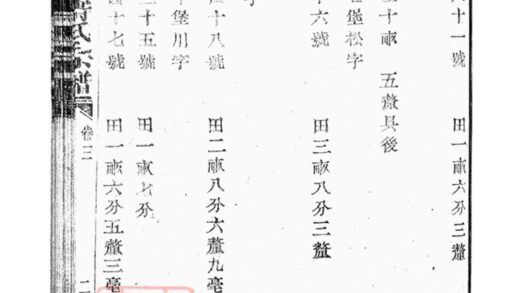 十一號 田一畝六分三釐
十畝 五釐具後
堡松字
十六號 田三畝八分三釐
十八號 田二畝八分六釐九毫
堡川字
十五號 田一畝七分
十七號 田一畝六分五釐三毫
氏宗譜 卷三 二